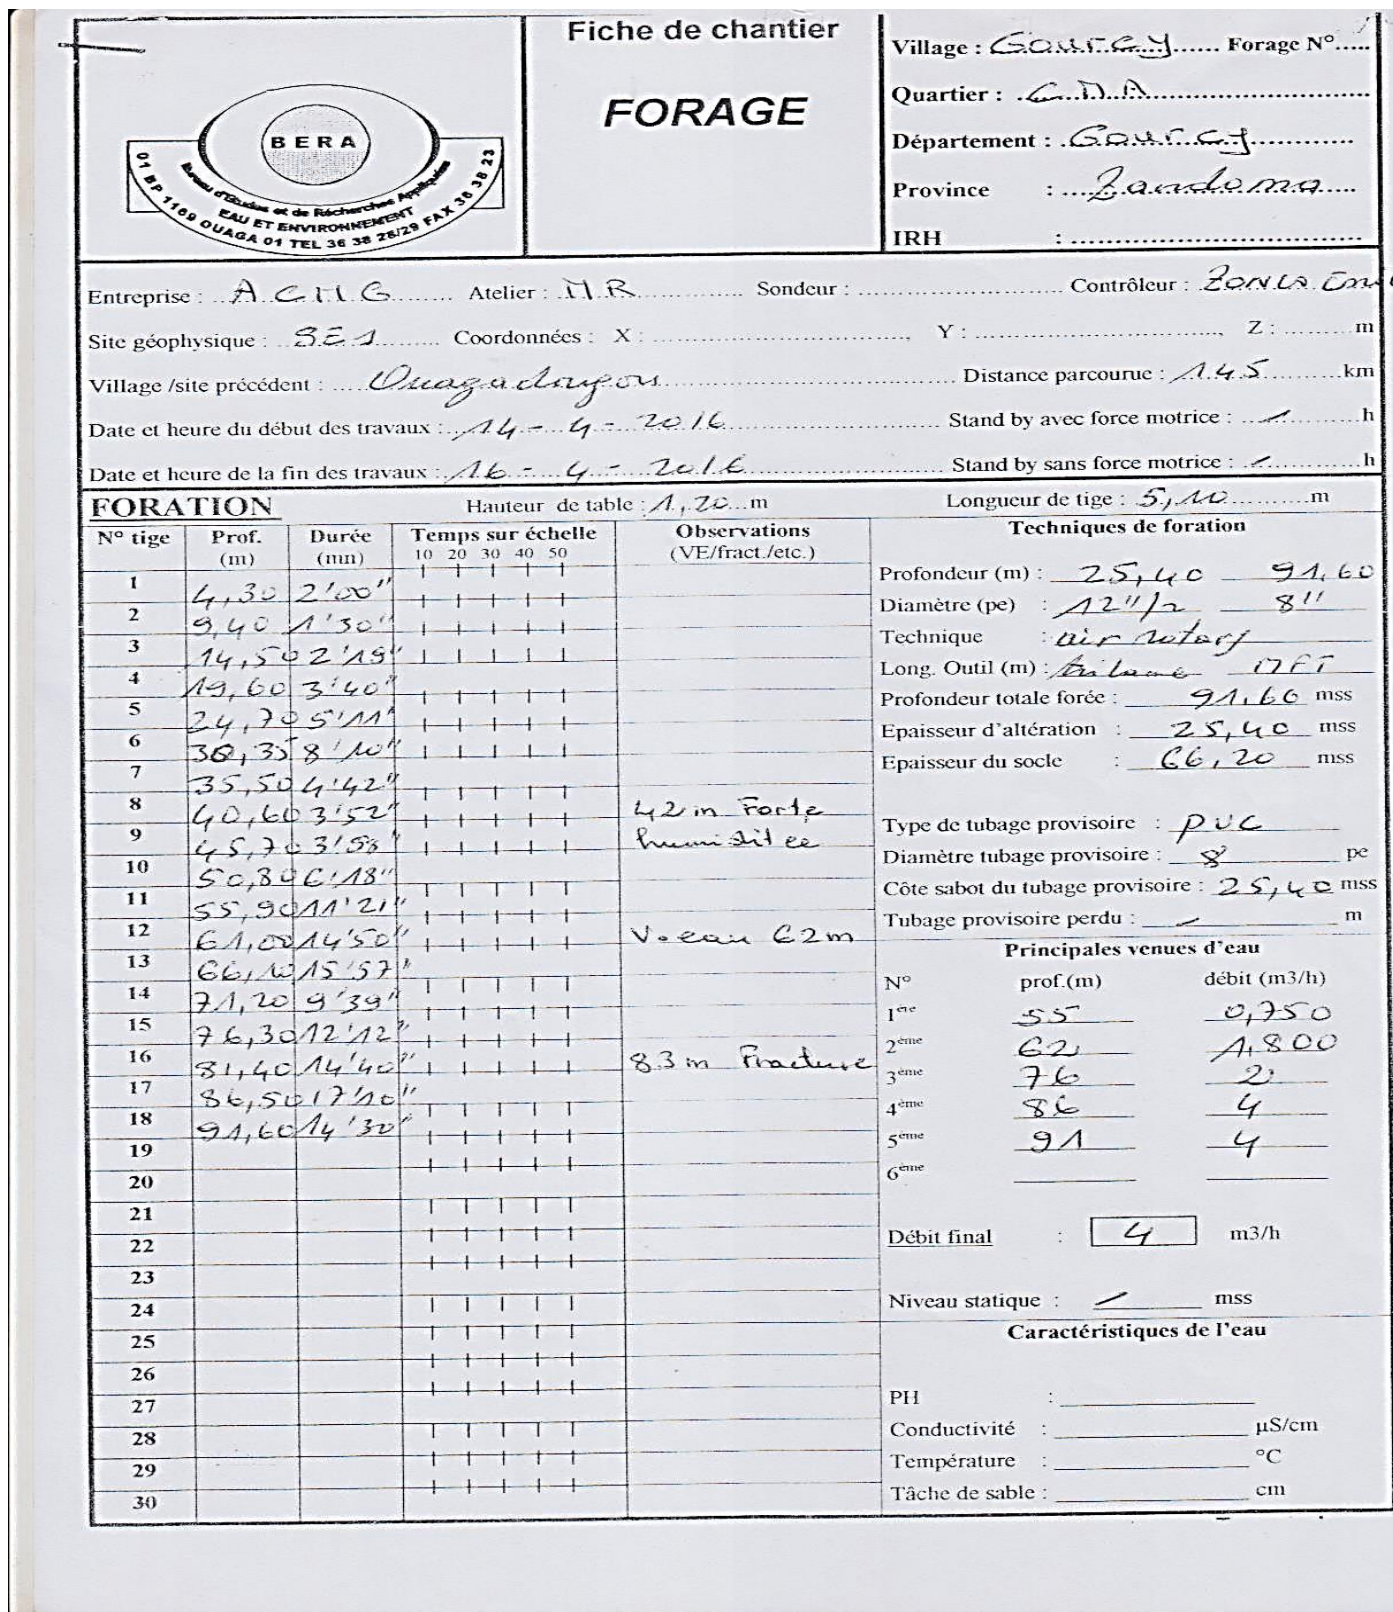 Fiche de chantier
FORAGE
BERA
Bureau d'Etudes et de Récherches Appliquées
EAU ET ENVIRONNEMENT
01 BP 1169 OUAGA 01 TEL 36 38 28/29 FAX 36 38 23
Village : Gourcy Forage N°
Quartier : CMA
Département : Gourcy
Province : Zandoma
IRH :
Entreprise : ACMG Atelier : MR Sondeur : Contrôleur :
Site géophysique : SE1 Coordonnées : X : Y : Z : m
Village /site précédent : Ouagadougou Distance parcourue : 145 km
Date et heure du début des travaux : 14 - 4 - 2016 Stand by avec force motrice : h
Date et heure de la fin des travaux : 16 - 4 - 2016 Stand by sans force motrice : h
FORATION Hauteur de table : 1,20 m Longueur de tige : 5,10 m
N° tige Prof. (m) Durée (mn) Temps sur échelle 10 20 30 40 50 Observations (VE/fract./etc.)
1 4,30 2'00"
2 9,40 1'30"
3 14,50 2'19"
4 19,60 3'40"
5 24,70 5'11"
6 30,35 8'10"
7 35,50 4'42"
8 40,60 3'52" 42m Forte
9 45,70 humiditée
10 50,80 6'18"
11 55,90 11'21"
12 61,00 14'50" V.eau 62m
13 66,10 15'57"
14 71,20 9'39"
15 76,30 12'12"
16 81,40 14'40" 83m Fracture
17 86,50 17'10"
18 91,60 14'30"
19
20
21
22
23
24
25
26
27
28
29
30
Techniques de foration
Profondeur (m) : 25,40 91,60
Diamètre (pe) : 12"1/2 8"
Technique : air rotary
Long. Outil (m) : trilame MFT
Profondeur totale forée : 91,60 mss
Epaisseur d'altération : 25,40 mss
Epaisseur du socle : 66,20 mss
Type de tubage provisoire : PVC
Diamètre tubage provisoire : 8 pe
Côte sabot du tubage provisoire : 25,40 mss
Tubage provisoire perdu : m
Principales venues d'eau
N° prof.(m) débit (m3/h)
1ere 55 0,750
2ème 62 1,800
3ème 76 2
4ème 86 4
5ème 91 4
6ème
Débit final : 4 m3/h
Niveau statique : mss
Caractéristiques de l'eau
PH :
Conductivité : µS/cm
Température : °C
Tâche de sable : cm